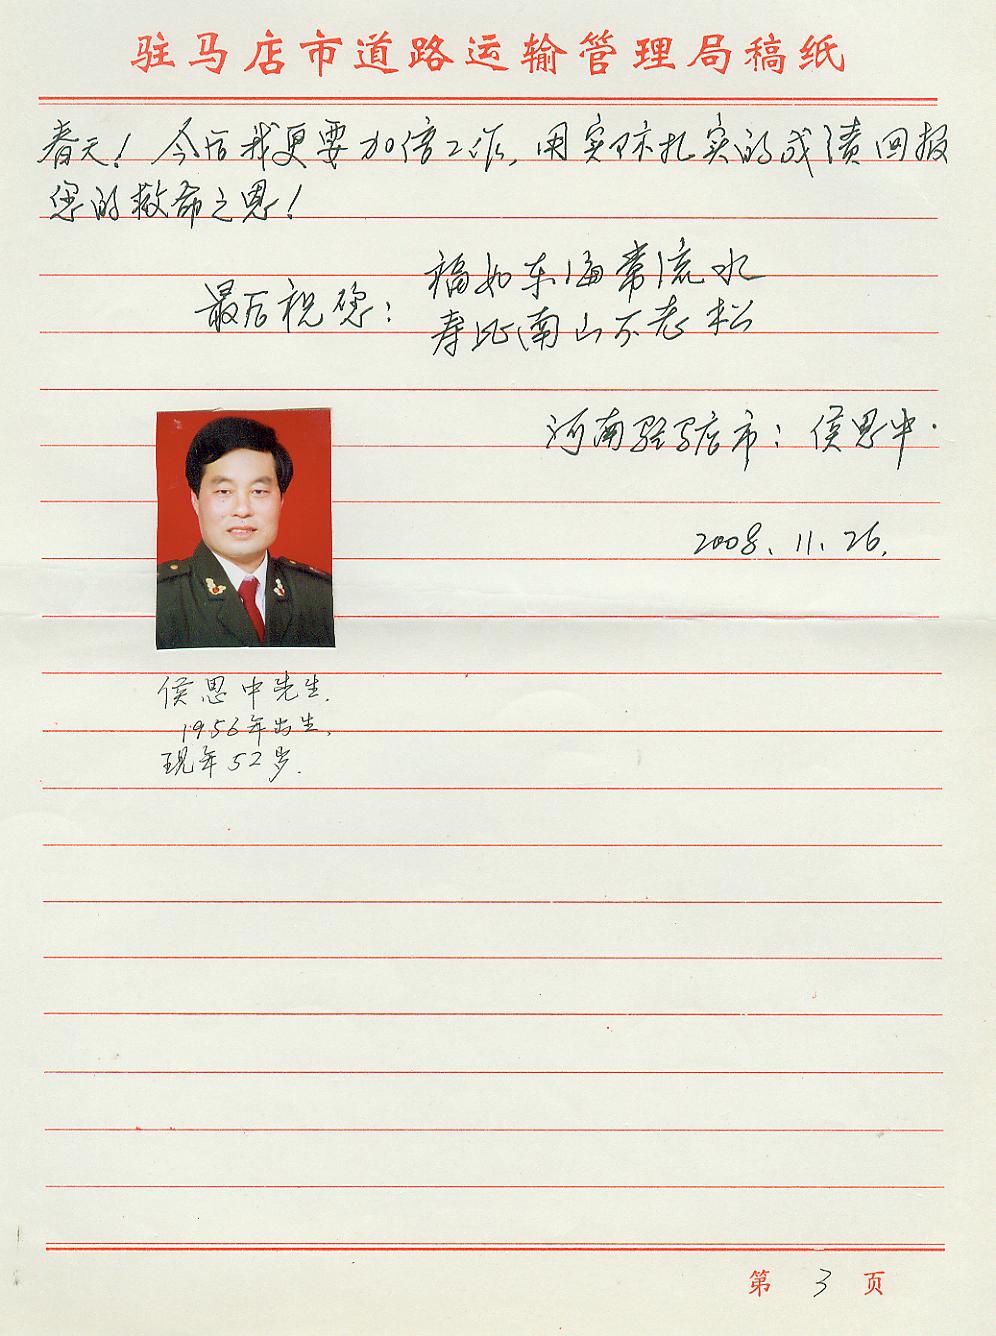 驻马店市道路运输管理局稿纸
春天！今后我更要加倍工作，用实际扎实的成绩回报
您的救命之恩！
最后祝您：
福如东海常流水
寿比南山不老松
河南驻马店市：侯思中.
2008.11.26.
侯思中先生.
1956年出生,
现年52岁.
第3页